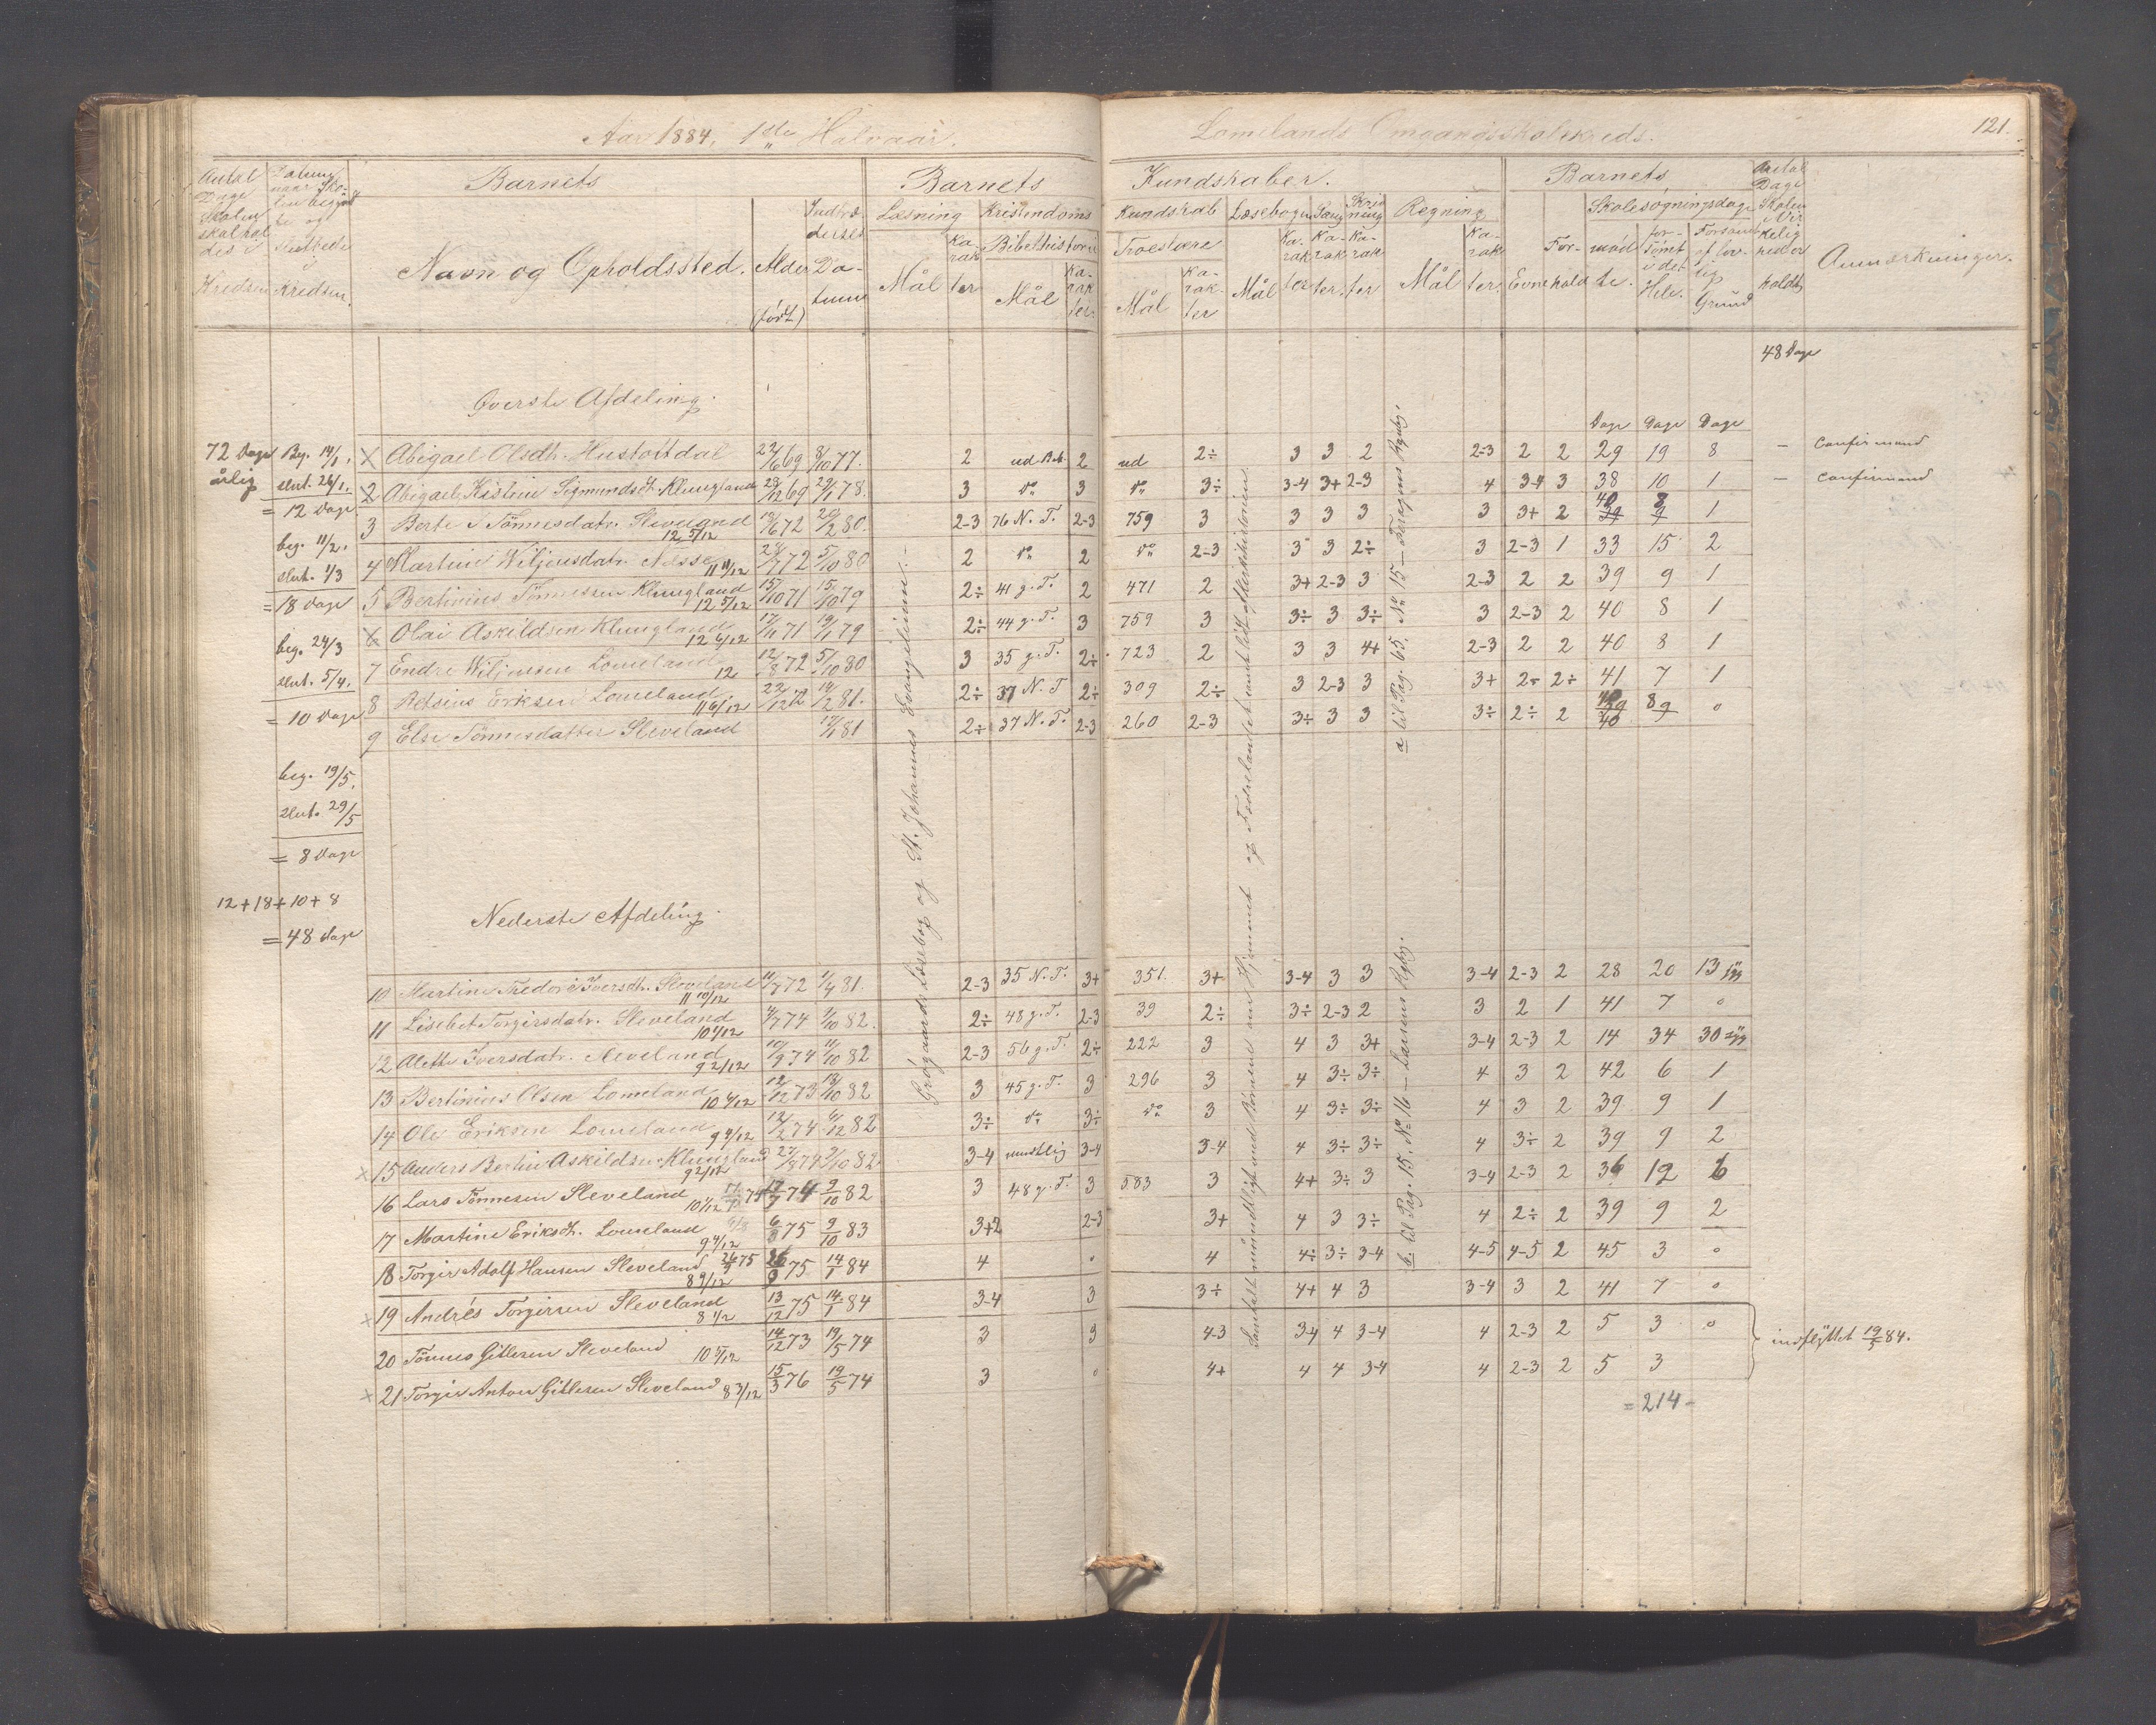 Aar 1884, 1ste Halvaar.
Lomelands Omgangsskolekreds.
121.
Antal Dage Skolen skal holdes i Kredsen
Datum naar Skolen begyndte og sluttede i Kredsen.
Barnets
Navn og Opholdssted.
Alder (født)
Indtrædelses Datum
Barnets
Læsning
Mål
Karakter
Kristendoms
Bibelhistorie
Mål
Karakter.
Kundskaber.
Kundskab
Troeslære
Mål
Karakter
Læsebogen
Mål
Karakter
Sang
Karakter.
Skrivning
Karakter
Regning
Mål
Karakter.
Barnets
Evne
Forhold
Skolesøgningsdage
mødte.
forsømt i det Hele.
Forsømt af lovlig Grund
Antal Dage Skolen virkelig er holdt
Anmærkninger.
48 Dage
Øverste Afdeling.
Dage Dage Dage
72 Dage årlig
Beg. 14/1.
slut. 26/1.
= 12 Dage
beg. 11/2.
slut. 1/3
= 18 Dage
beg. 24/3
slut. 5/4.
= 10 Dage
beg. 19/5.
slut. 29/5
= 8 Dage
12+18+10+8
= 48 Dage
Abigael Olsdtr. Hustoftdal 22/6 69 8/10 77. 2 ud Bib. 2 ud 2÷ 3 3 2 2-3 2 2 29 19 8 - Confirmand
2 Abigael Kistine Sigmundsdt. Klungland 28/12 69 29/1 78. 3 do 3 do 3÷ 3-4 3+ 2-3 4 3-4 3 38 10 1 - Confirmand
3 Berte S Tönnesdatr. Sleveland 12 5/12 72 80. 2-3 76 N. T. 2-3 759 3 3 3 3 3 3+ 2 40 8 1
4 Martine Wiljensdatr. Nesse 11 11/12 72 5/10 80 2 do 2 do 2-3 3 3 2÷ 3 2-3 1 33 15 2
5 Bertinius Tönnessen Klungland 12 5/12 15/10 71 15/10 79 2÷ 41 g. T. 2 471 2 3+ 2-3 3 2-3 2 2 39 9 1
Olai Askildsen Klungland 12 6/12 71 79 2÷ 44 g. T. 3 759 3 3÷ 3 3÷ 3 2-3 2 40 8 1
7 Endre Wiljensen Lomeland 12 12/8 72 5/10 80 3 35 g. T. 2÷ 723 2 3 3 4+ 2-3 2 2 40 8 1
8 Retsius Eriksen Lomeland 11 6/12 22/12 72 14/2 81. 2÷ 37 N. T 2÷ 309 2÷ 3 2-3 3 3+ 2÷ 2÷ 41 7 1
9 Else Tönnesdatter Sleveland 81 2÷ 37 N. T. 2-3 260 2-3 3+ 3 3 3÷ 2÷ 2 40 8 0
Grögaards Læsebog og St. Johannes Evangelium.
Samtalt mundtligt med Börnene om Hjemmet og Fædrelandet samt lidt af Verdenshistorien.
a til Pag. 65. No 15
b. til Pag. 15. No 16 - Larsens Rgbg.
Nederste Afdeling.
10 Martine Thedore Iversdt. Sleveland 11 10/12 11/7 72 1/4 81. 2-3 35 N. T. 3+ 351. 3+ 3-4 3 3 3-4 2-3 2 28 20 13 syg
11 Lisebet Torgirsdatr. Sleveland 10 1/12 74 82. 2÷ 48 g. T. 2-3 39 2÷ 3÷ 2-3 2 3 2 1 41 7 0
12 Alette Iversdatr. Sleveland 9 2/12 10/9 74 11/10 82 2-3 56 g. T. 2÷ 222 3 4 3 3+ 3-4 2-3 2 14 34 30 syg
13 Bertinius Olsen Lomeland 10 4/12 12/12 73 13/10 82 3 45 g. T. 3 296 3 4 3÷ 3÷ 4 3 2 42 6 1
14 Ole Eriksen Lomeland 9 9/12 12/2 74 82 3÷ do 3÷ do 3 4 3÷ 3÷ 4 3 2 39 9 1
15 Anders Bertin Askildsen Klungland 9 2/12 27/8 74 9/10 82. 3-4 mundtlig 3-4 3-4 4 3÷ 3÷ 4 3÷ 2 39 9 2
16 Lars Tönnesen Sleveland 10 1/12 74 9/10 82 3 48 g. T. 3 583 3 4+ 3÷ 3 3-4 2-3 2 36 12 6
17 Martine Eriksdt. Lomeland 9 4/12 6/8 75 9/10 83 3+2 2-3 3+ 4 3 3÷ 4 2÷ 2 39 9 2
18 Torgir Adolf Hansen Sleveland 8 9/12 26/9 75 26/9 75 14/1 84 4 0 4 4÷ 3÷ 3-4 4-5 4-5 2 45 3 0
19 Andrés Torgirsen Sleveland 8 1/2 13/12 75 14/1 84 3-4 3 3÷ 4+ 4 3 3-4 3 2 41 7 0
20 Tönnes Gitlesen Sleveland 10 5/12 14/12 73 19/5 74 3 3 4-3 3-4 4 3-4 4 2-3 2 5 3 0
21 Torgir Anton Gitlesen Sleveland 8 3/12 15/3 76 19/5 74 3 0 4+ 4 4 3-4 4 2-3 2 5 3
indflyttet 19/5 84.
= 214 -